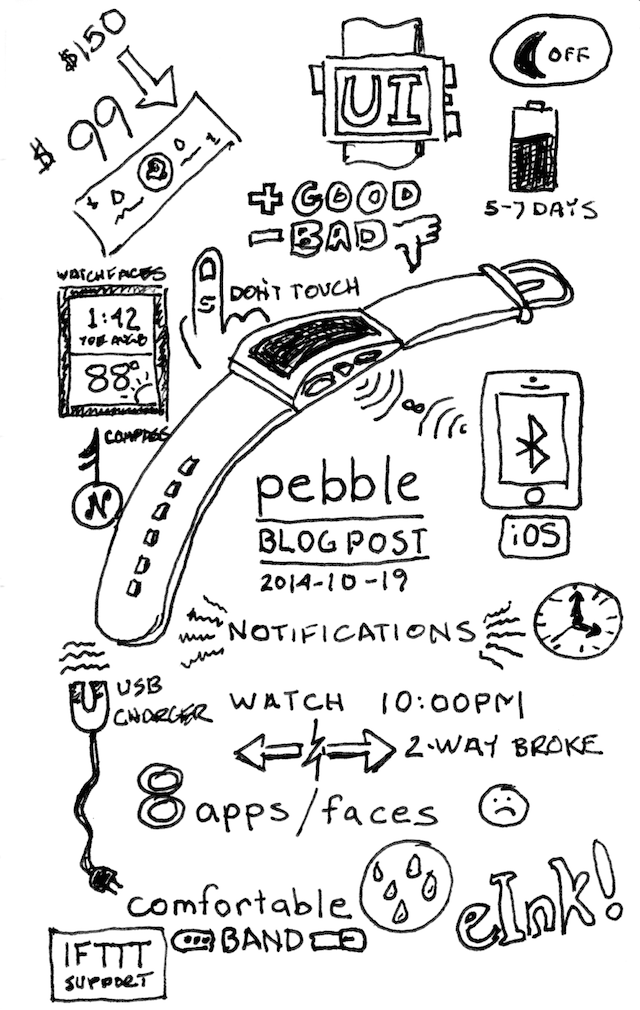 $150
$99
UI
OFF
5-7 DAYS
+ GOOD
- BAD
WATCHFACES
1:42
88°
DON'T TOUCH
COMPASS
N
pebble
BLOG POST
2014-10-19
iOS
NOTIFICATIONS
USB
CHARGER
WATCH 10:00PM
2-WAY BROKE
8 apps/faces
comfortable
BAND
eInk!
IFTTT
SUPPORT